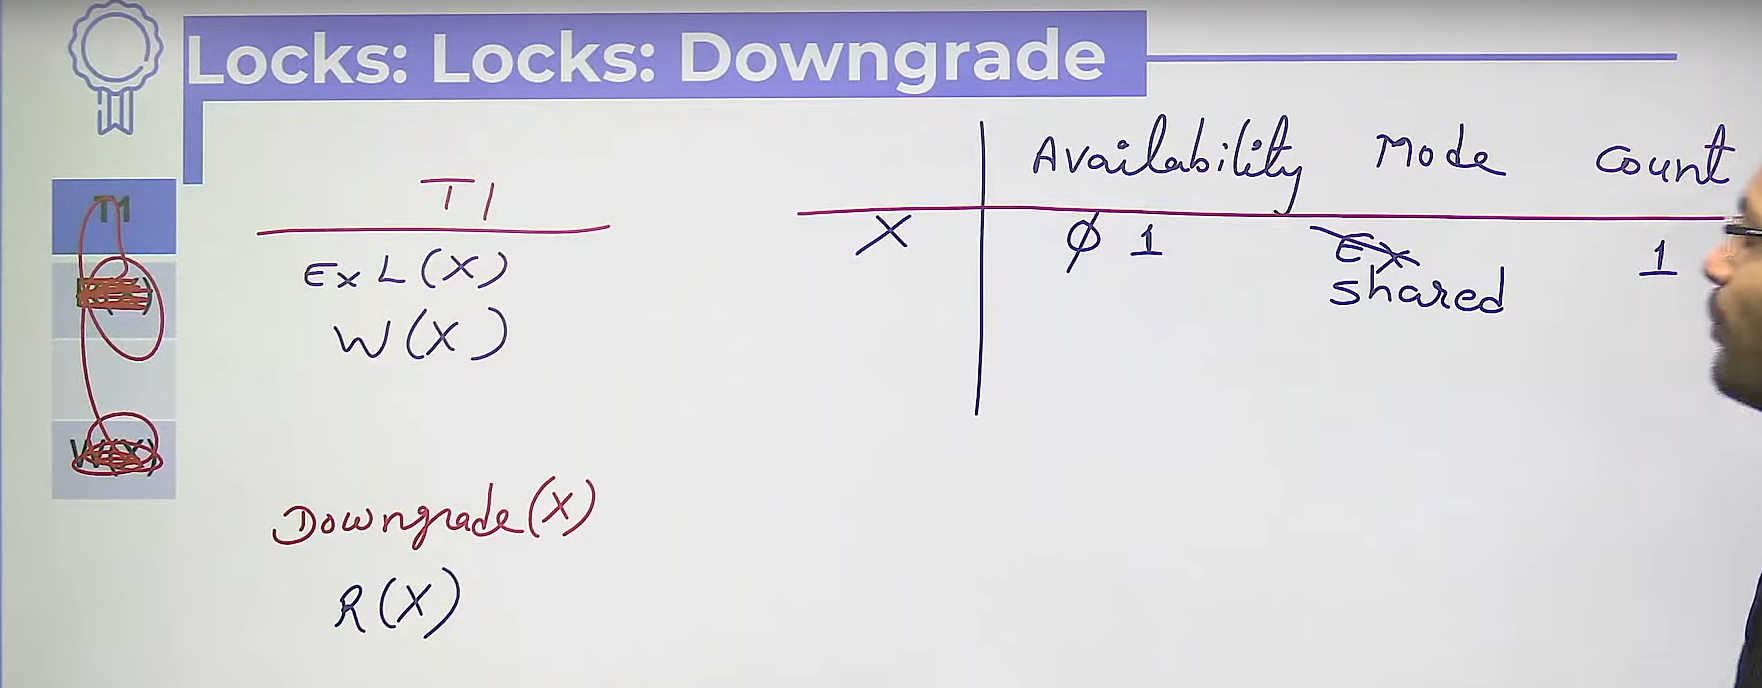 Locks: Locks: Downgrade
T1
T1
ExL(X)
W(X)
Downgrade(X)
R(X)
Availability Mode Count
X 0 1 Ex 1
shared